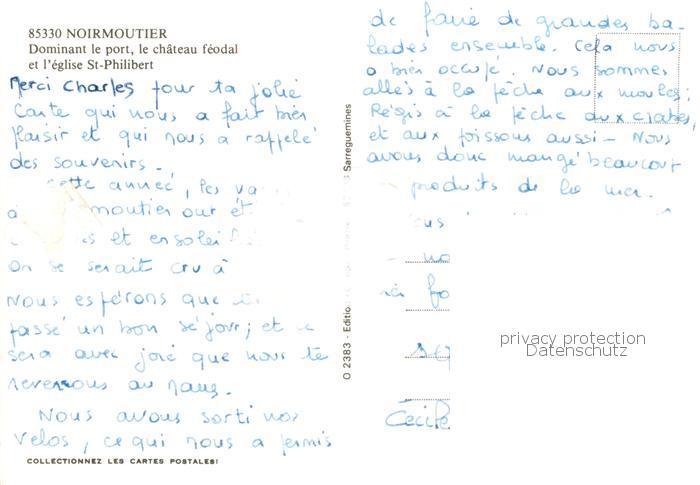 85330 NOIRMOUTIER
Dominant le port, le château féodal
et l'église St-Philibert
Merci Charles pour ta jolie
Carte qui nous a fait bien
plaisir et qui nous a rappelé
des souvenirs.
cette année, les va
moutier ont ét
et ensolei
On se serait cru à
Nous espérons que
passé un bon séjour, et
sera avec joie que nous te
reverrons au Mans.
Nous avons sorti nos
Vélos, ce qui nous a permis
COLLECTIONNEZ LES CARTES POSTALES!
O 2383 - Editio
Sarreguemines
de faire de grandes ba-
lades ensemble. Cela nous
a bien occupé. Nous sommes
allés à la pêche aux moules,
Régis à la pêche aux crabes,
et aux poissons aussi - Nous
avons donc mangé beaucoup
produits de la mer.
ous
no
Cécile
privacy protection
Datenschutz